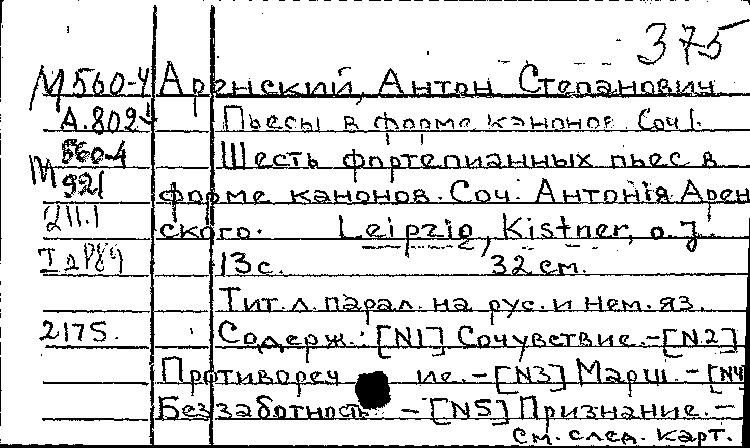 375
М560-4 Аренский, Антон Степанович
А.802 Пьесы в форме канонов. Соч1.
560-4 Шесть фортепианных пьес в
М 921 форме канонов. Соч. Антонія Арен
211.1 ского. Leipzig, Kistner, o. J.
13 с. 32 см.
Тит. л. парал. на рус. и нем. яз.
2175. Содерж.: [N1] Сочувствие. – [N2]
Противореч ие. – [N3] Марш. – [N4
Беззаботность – [N5] Признание. –
см. след. карт.